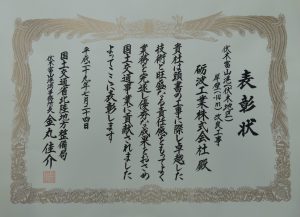 表彰状
伏木富山港(伏木地区)
岸壁(-14m)改良工事
砺波工業株式会社 殿
貴社は頭書の工事に際し卓越した
技術と旺盛なる責任感をもってよく
業務を完遂し優秀な成果をおさめ
国土交通事業に貢献されました
よってここに表彰します
平成二十九年七月二十四日
国土交通省北陸地方整備局
伏木富山港湾事務所長 金丸佳介